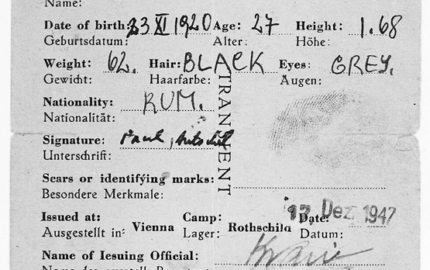 Name:
Date of birth: 23 XI 1920 Age: 27 Height: 1.68
Geburtsdatum: Alter: Höhe:
Weight: 62. Hair: BLACK Eyes: GREY.
Gewicht: Haarfarbe: Augen:
Nationality: RUM.
Nationalität:
TRANSIENT
Signature: Paul,
Unterschrift:
Scars or identifying marks:
Besondere Merkmale:
Issued at: Vienna Camp: Rothschild Date: 17 Dez 1947
Ausgestellt in: Lager: Datum:
Name of Issuing Official: